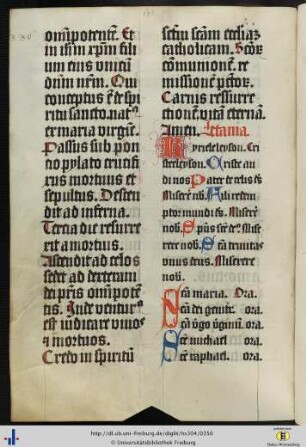 omnipotente̅. Et
in ihm̅ xp̅m fili
um eius vnicu̅
dn̅m nr̅m. Qui
conceptus e̅ de spi
ritu sancto. nat9
ex maria virgi̅e.
Passus sub pon
tio pylato crucifi
xus mortuus et
sepultus. Descen
dit ad inferna.
Tercia die resurre
xit a mortuis.
Ascendit ad celos
sedet ad dexteram
dei pr̅is om̅ipote̅
tis. Inde ventur9
est iudicare viuos
⁊ mortuos.
Credo in spiritu̅
sctm̅ scam̅ eccliaz̅
catholicam. Scor̅
com̅unione̅. re
missione̅ pctor̅.
Carnis resurre
ctione̅ vita̅ eterna̅.
Amen. Letania.
Kyrieleyson. Cri
steleyson. Criste au
di nos Pater de celis de9
Miserere nob̅. Fili redem
ptor mundi de9. Misere̅
nob̅. Sp̅us sce̅ de9 Mise
rere nob̅. Sca̅ trinitas
vnus deus. Miserere
nob̅.
Sca̅ maria. Ora.
Sca̅ dei genitr̅. ora.
Sca̅ v̅go v̅ginu̅. ora.
Sce̅ michael ora.
Sce̅ raphael. ora.
http://dl.ub.uni-freiburg.de/diglit/hs304/0350
© Universitätsbibliothek Freiburg